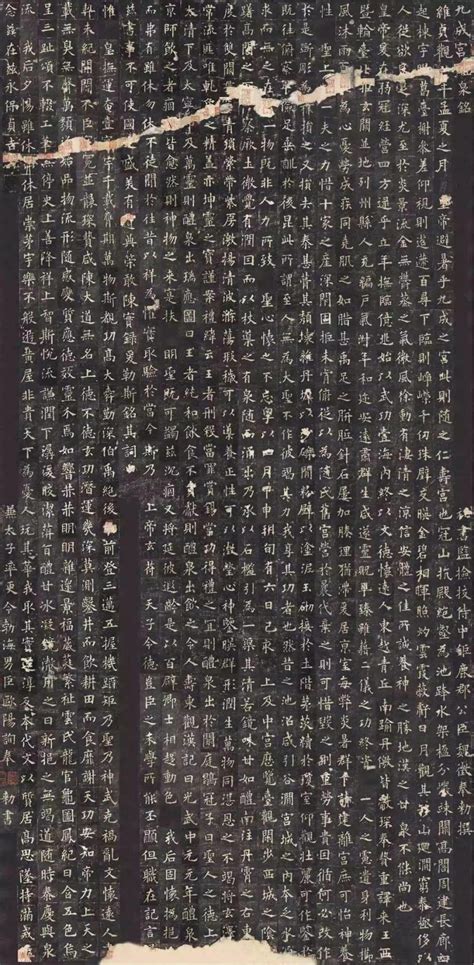 九成宮泉銘 秘書監檢校侍中鉅鹿郡公臣魏徵奉勅撰
維貞觀年孟夏之月帝避暑乎九成之宮此則隨之仁壽宮也冠山抗殿絕壑為池跨水架楹分巖竦闕高閣周建長廊四
起棟宇葛臺榭參差仰視則迢遰百尋下臨則崢嶸千仞珠璧交暎金碧相暉照灼雲霞蔽虧日月觀其移山迴澗窮泰極侈以
人從欲良足深尤至於炎景流金無鬱蒸之氣微風徐動有淒清之涼信安體之佳所誠養神之勝地漢之甘泉不能尚也
皇帝爰在弱冠經營四方逮乎立年撫臨億兆始以武功壹海內終以文德懷遠人東越青丘南踰丹儌皆獻琛奉贄重譯來王西
暨輪臺北拒玄闕並地列州縣人充編戶氣淑年和邇安遠肅群生咸遂靈貺畢臻雖藉二儀之功終資一人之慮遺身利物櫛
風沐雨百姓為心憂勞成疾同堯肌之如腊甚禹足之胼胝針石屢加腠理猶滯爰居京室每弊炎暑群下請建離宮庶可怡神養
性聖上一夫之力惜十家之產深閉固拒未肯俯從以為隨氏舊宮營於曩代棄之則可惜毀之則重勞事貴因循何必改作
於是斲彫為樸損之又損去其泰甚葺其頹壞雜丹墀以沙礫間粉壁以塗泥玉砌接於土階茅茨續於瓊室仰觀壯麗可作鑒於
既往俯察卑儉足垂訓於後昆此所謂至人無為大聖不作彼竭其力我享其功者也然昔之池沼咸引谷澗宮城之內本乏水
源求而無之在乎一物既非人力所致聖心懷之不忘粵以四月甲申朔旬有六日己亥上及中宮歷覽臺觀閑步西城之陰躊躇
高閣之下俯察厥土微覺有潤因而以杖導之有泉隨而涌出乃承以石檻引為一渠其清若鏡味甘如醴南注丹霄之右東流
度於雙闕貫穿青瑣縈帶紫房激揚清波滌蕩瑕穢可以導養正性可以澂瑩心神鑒暎群形潤生萬物同湛恩之不竭將玄澤於
常流匪唯乾象之精蓋亦坤靈之寶謹案禮緯云王者刑殺當罪賞錫當功得禮之宜則醴泉出於闕庭鶡冠子曰聖人之德上及
太清下及太寧中及萬靈則醴泉出瑞應圖曰王者純和飲食不貢獻則醴泉出飲之令人壽東觀漢記曰光武中元元年醴泉出
京師飲之者痼疾皆愈然則神物之來寔扶明聖既可蠲茲沉痼又將延彼遐齡是以百辟卿士相趨動色我后固懷撝挹推
而弗有雖休勿休不徒聞於往昔以祥為懼實取驗於當今斯乃上帝玄符天子令德豈臣之末學所能丕顯但職在記言屬
茲書事不可使國之盛美有遺典策敢陳實錄爰勒斯銘其詞曰
惟皇撫運奄壹寰宇千載膺期萬物斯睹功高大舜勤深伯禹絕後前登三邁五握機蹈矩乃聖乃神武克禍亂文懷遠人
書契未紀開闢不臣冠冕並襲琛贄咸陳大道無名上德不德玄功潛運幾深莫測鑿井而飲耕田而食靡謝天功安知帝力上天之
載無臭無聲萬類資始品物流形隨感變質應德效靈介焉如響赫赫明明雜遝景福葳蕤繁祉雲氏龍官龜圖鳳紀日含五色烏
呈三趾頌不輟工筆無停史上善降祥上智斯悅流謙潤下潺湲皎潔蓱旨醴甘冰凝鏡澈用之日新挹之無竭道隨時泰慶與泉
流我后夕惕雖休弗休居崇茅宇樂不般遊黃屋非貴天下為憂人玩其華我取其實還淳反本代文以質居高思墜持滿戒溢
念茲在茲永保貞吉 兼太子率更令勃海男臣歐陽詢奉勅書